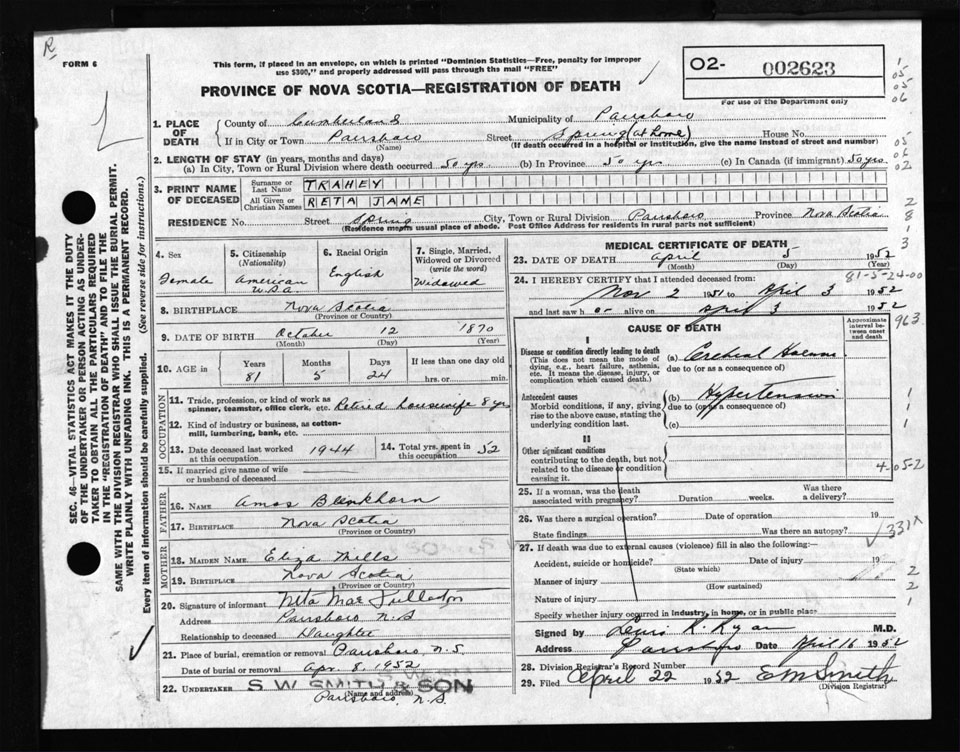 R
FORM 6
This form, if placed in an envelope, on which is printed "Dominion Statistics—Free, penalty for improper
use $300," and properly addressed will pass through the mail "FREE"
O2- 002623
For use of the Department only
PROVINCE OF NOVA SCOTIA—REGISTRATION OF DEATH
1. PLACE OF DEATH
County of Cumberland Municipality of Parrsboro
If in City or Town Parrsboro Street Spring (at home) House No.
(Name) (If death occurred in a hospital or institution, give the name instead of street and number)
2. LENGTH OF STAY (in years, months and days)
(a) In City, Town or Rural Division where death occurred 50 yrs (b) In Province 50 yrs (c) In Canada (if immigrant) 50 yrs
3. PRINT NAME OF DECEASED
Surname or Last Name TRAHEY
All Given or Christian Names RETA JANE
RESIDENCE No. Street Spring City, Town or Rural Division Parrsboro Province Nova Scotia
(Residence means usual place of abode. Post Office Address for residents in rural parts not sufficient)
4. Sex
Female
5. Citizenship
(Nationality)
American
U.S.A.
6. Racial Origin
English
7. Single, Married, Widowed or Divorced
(write the word)
Widowed
8. BIRTHPLACE Nova Scotia
(Province or Country)
9. DATE OF BIRTH October 12 1870
(Month) (Day) (Year)
10. AGE in
Years Months Days If less than one day old
81 5 24 hrs. or min.
OCCUPATION
11. Trade, profession, or kind of work as
spinner, teamster, office clerk, etc. Retired housewife 8 yrs
12. Kind of industry or business, as cotton-
mill, lumbering, bank, etc.
13. Date deceased last worked at this occupation 1944
14. Total yrs. spent in this occupation 52
15. If married give name of wife
or husband of deceased
FATHER
16. NAME Amos Blenkhorn
17. BIRTHPLACE Nova Scotia
MOTHER
18. MAIDEN NAME Eliza Mills
19. BIRTHPLACE Nova Scotia
(Province or Country)
20. Signature of informant Mae
Address Parrsboro N.S
Relationship to deceased Daughter
21. Place of burial, cremation or removal Parrsboro, N.S.
Date of burial or removal Apr. 8, 1952
22. UNDERTAKER S. W. SMITH & SON
(Name and address)
Parrsboro, N.S.
MEDICAL CERTIFICATE OF DEATH
23. DATE OF DEATH April 5 1952
(Month) (Day) (Year)
24. I HEREBY CERTIFY that I attended deceased from: 81-5-24-00
Nov 2 1951 to April 3 1952
and last saw h er alive on April 3 1952
CAUSE OF DEATH
Approximate interval between onset and death
I
Disease or condition directly leading to death (a) Cerebral
(This does not mean the mode of
dying, e.g., heart failure, asthenia,
etc. It means the disease, injury, or
complication which caused death.)
due to (or as a consequence of)
Antecedent causes (b) Hypertension
Morbid conditions, if any, giving
rise to the above cause, stating the
underlying condition last.
due to (or as a consequence of)
(c)
II
Other significant conditions
contributing to the death, but not
related to the disease or condition
causing it.
25. If a woman, was the death
associated with pregnancy? Duration weeks. Was there a delivery?
26. Was there a surgical operation? Date of operation 19
State findings Was there an autopsy?
27. If death was due to external causes (violence) fill in also the following:—
Accident, suicide or homicide? Date of injury 19
(State which)
Manner of injury
(How sustained)
Nature of injury
Specify whether injury occurred in industry, in home, or in public place
Signed by Lewis R. Ryan M.D.
Address Parrsboro Date April 16 1952
28. Division Registrar's Record Number
29. Filed April 22 1952 E M Smith
(Division Registrar)
SEC. 46—VITAL STATISTICS ACT MAKES IT THE DUTY
OF THE UNDERTAKER OR PERSON ACTING AS UNDER-
TAKER TO OBTAIN ALL THE PARTICULARS REQUIRED
IN THE "REGISTRATION OF DEATH" AND TO FILE THE
SAME WITH THE DIVISION REGISTRAR WHO SHALL ISSUE THE BURIAL PERMIT.
WRITE PLAINLY WITH UNFADING INK. THIS IS A PERMANENT RECORD.
Every item of information should be carefully supplied. (See reverse side for instructions.)
1
05
05
06
05
06
02
2
8
1
3
963
1
1
1
4-05-2
331X
2
2
1